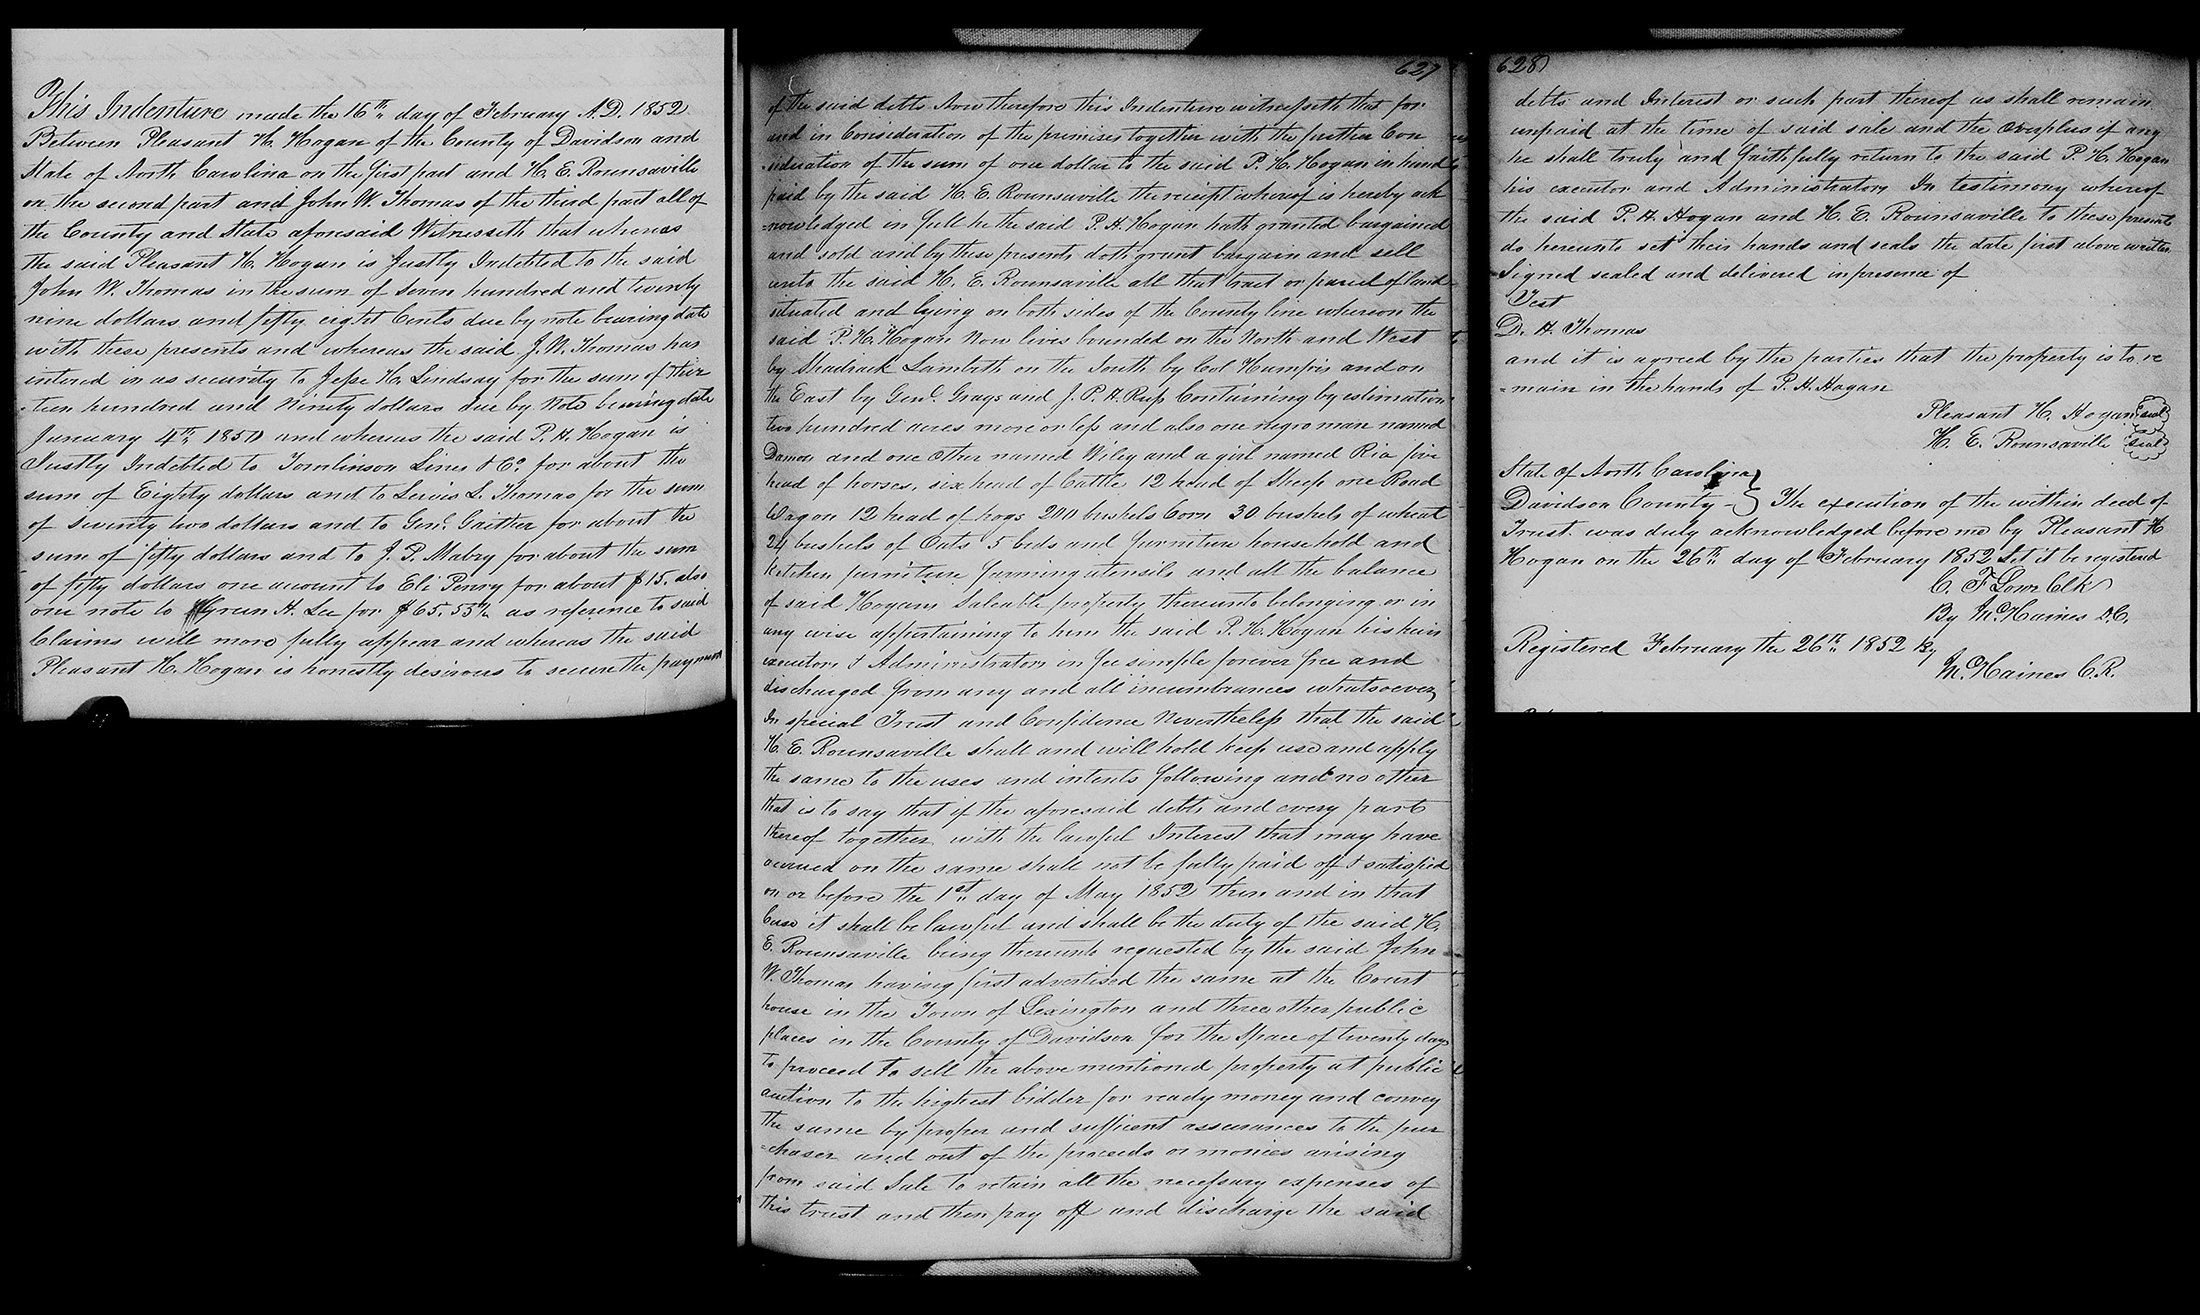 This Indenture made the 16th day of February A.D. 1852
Between Pleasant H. Hogan of the County of Davidson and
State of North Carolina on the first part and H. E. Rounsaville
on the second part and John W. Thomas of the third part all of
the County and State aforesaid Witnesseth that whereas
the said Pleasant H. Hogan is Justly Indebted to the said
John W. Thomas in the sum of seven hundred and twenty
nine dollars and fifty eight Cents due by note bearing date
with these presents and whereas the said J. W. Thomas has
intered in as security to Jesse H. Lindsay for the sum of thir
-teen hundred and Ninety dollars due by Note bearing date
January 4th 1850 and whereas the said P. H. Hogan is
Justly Indebted to Tomlinson Lines & Co. for about the
sum of Eighty dollars and to Lewis L. Thomas for the sum
of seventy two dollars and to Genl. Gaither for about the
sum of fifty dollars and to J. P. Mabry for about the sum
of fifty dollars one acount to Eli Penry for about $15. also
one note to Green H. Lee for $65.55½ as reference to said
Claims will more fully appear and whereas the said
Pleasant H. Hogan is honestly desirous to secure the payment
627
of the said debts Now therefore this Indenture witnesseth that for
and in Consideration of the premises together with the further Con
-sideration of the sum of one dollar to the said P. H. Hogan in hand
paid by the said H. E. Rounsaville the receipt whereof is hereby ack
-nowledged in full he the said P. H. Hogan hath granted bargained
and sold and by these presents doth grant bargain and sell
unto the said H. E. Rounsaville all that tract or parcel of land
situated and lying on both sides of the County line whereon the
said P. H. Hogan Now lives bounded on the North and West
by Shadrack Lambeth on the South by Col and on
the East by Genl. Grays and J. P. H. Containing by estimation
two hundred acres more or less and also one negro man named
and one other named Wiley and a girl named Ria five
head of horses, six head of Cattle 12 head of Sheep one Road
Wagon 12 head of hogs 200 bushels Corn 30 bushels of wheat
24 bushels of Oats 5 beds and furniture household and
Kitchen furniture farming utensils and all the balance
of said Hogans Saleable property thereunto belonging or in
any wise appertaining to him the said P. H. Hogan his heirs
executors & Administrators in fee simple forever free and
discharged from any and all incumbrances whatsoever
In special Trust and Confidence Nevertheless that the said
H. E. Rounsaville shall and will hold keep use and apply
the same to the uses and intents following and no other
that is to say that if the aforesaid debts and every part
thereof together with the lawful Interest that may have
acrued on the same shall not be fully paid off & satisfied
on or before the 1st day of May 1852 then and in that
Case it shall be lawful and shall be the duty of the said H.
E. Rounsaville being thereunto requested by the said John
W. Thomas having first advertised the same at the Court
house in the Town of Lexington and three other public
places in the County of Davidson for the Space of twenty days
to proceed to sell the above mentioned property at public
auction to the highest bidder for ready money and convey
the same by proper and sufficent assurances to the pur
-chaser and out of the proceeds or monies arising
from said Sale to retain all the necessary expenses of
this trust and then pay off and discharge the said
628
debts and Interest or such part thereof as shall remain
unpaid at the time of said sale and the overplus if any
he shall truly and faithfully return to the said P. H. Hogan
his executor and Administrators In testimony whereof
the said P. H. Hogan and H. E. Rounsaville to these presents
do hereunto set their hands and seals the date first above written
Signed sealed and delivered in presence of
Test
D. H. Thomas
and it is agreed by the parties that the property is to re
-main in the hands of P. H. Hogan
Pleasant H. Hogan seal
H. E. Rounsaville seal
State of North Carolina
Davidson County - The execution of the within deed of
Trust was duly acknowledged before me by Pleasant H
Hogan on the 26th day of February 1852 Let it be registered
C. F Lowe Clk
By M. Haines D.C.
Registered February the 26th 1852 By
M. Haines C.R.